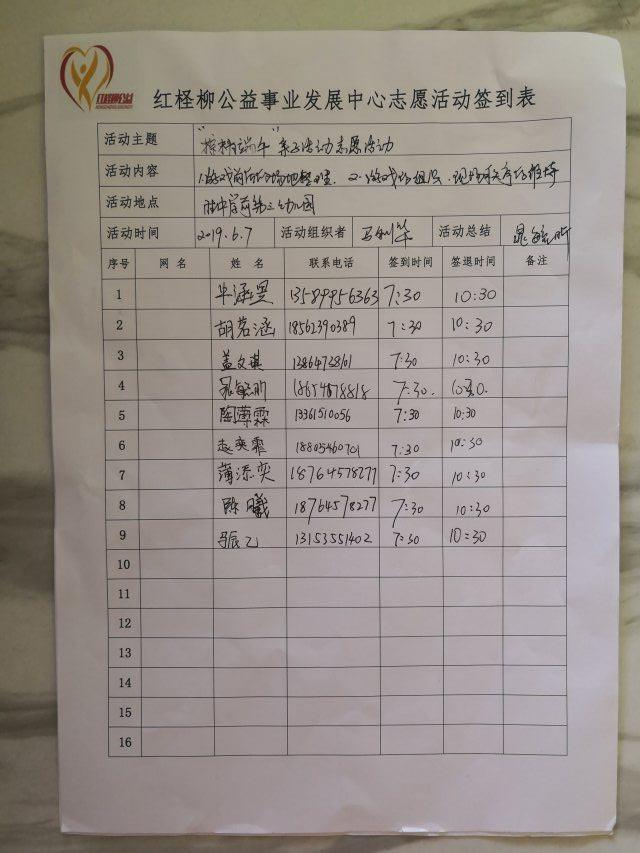 红柽柳公益
红柽柳公益事业发展中心志愿活动签到表
活动主题 " 端午"亲子活动志愿活动
活动内容 1.游戏前后的场地整理 2.游戏的组织、现场秩序的维持
活动地点 幼儿园
活动时间 2019.6.7 活动组织者 活动总结 晁毓昕
序号 网 名 姓 名 联系电话 签到时间 签退时间 备注
1 毕涵昱 13589956363 7:30 10:30
2 胡茗涵 18561390389 7:30 10:30
3 盖文琪 7:30 10:30
4 18654678818 7:30. 10:30.
5 陶薄霖 13361510056 7:30 10:30
6 赵奕霏 18805460701 7:30 10:30
7 薄添奕 18764578277 7:30 10:30
8 陈曦 18764578277 7:30 10:30
9 张乙 13153551402 7:30 10:30
10
11
12
13
14
15
16